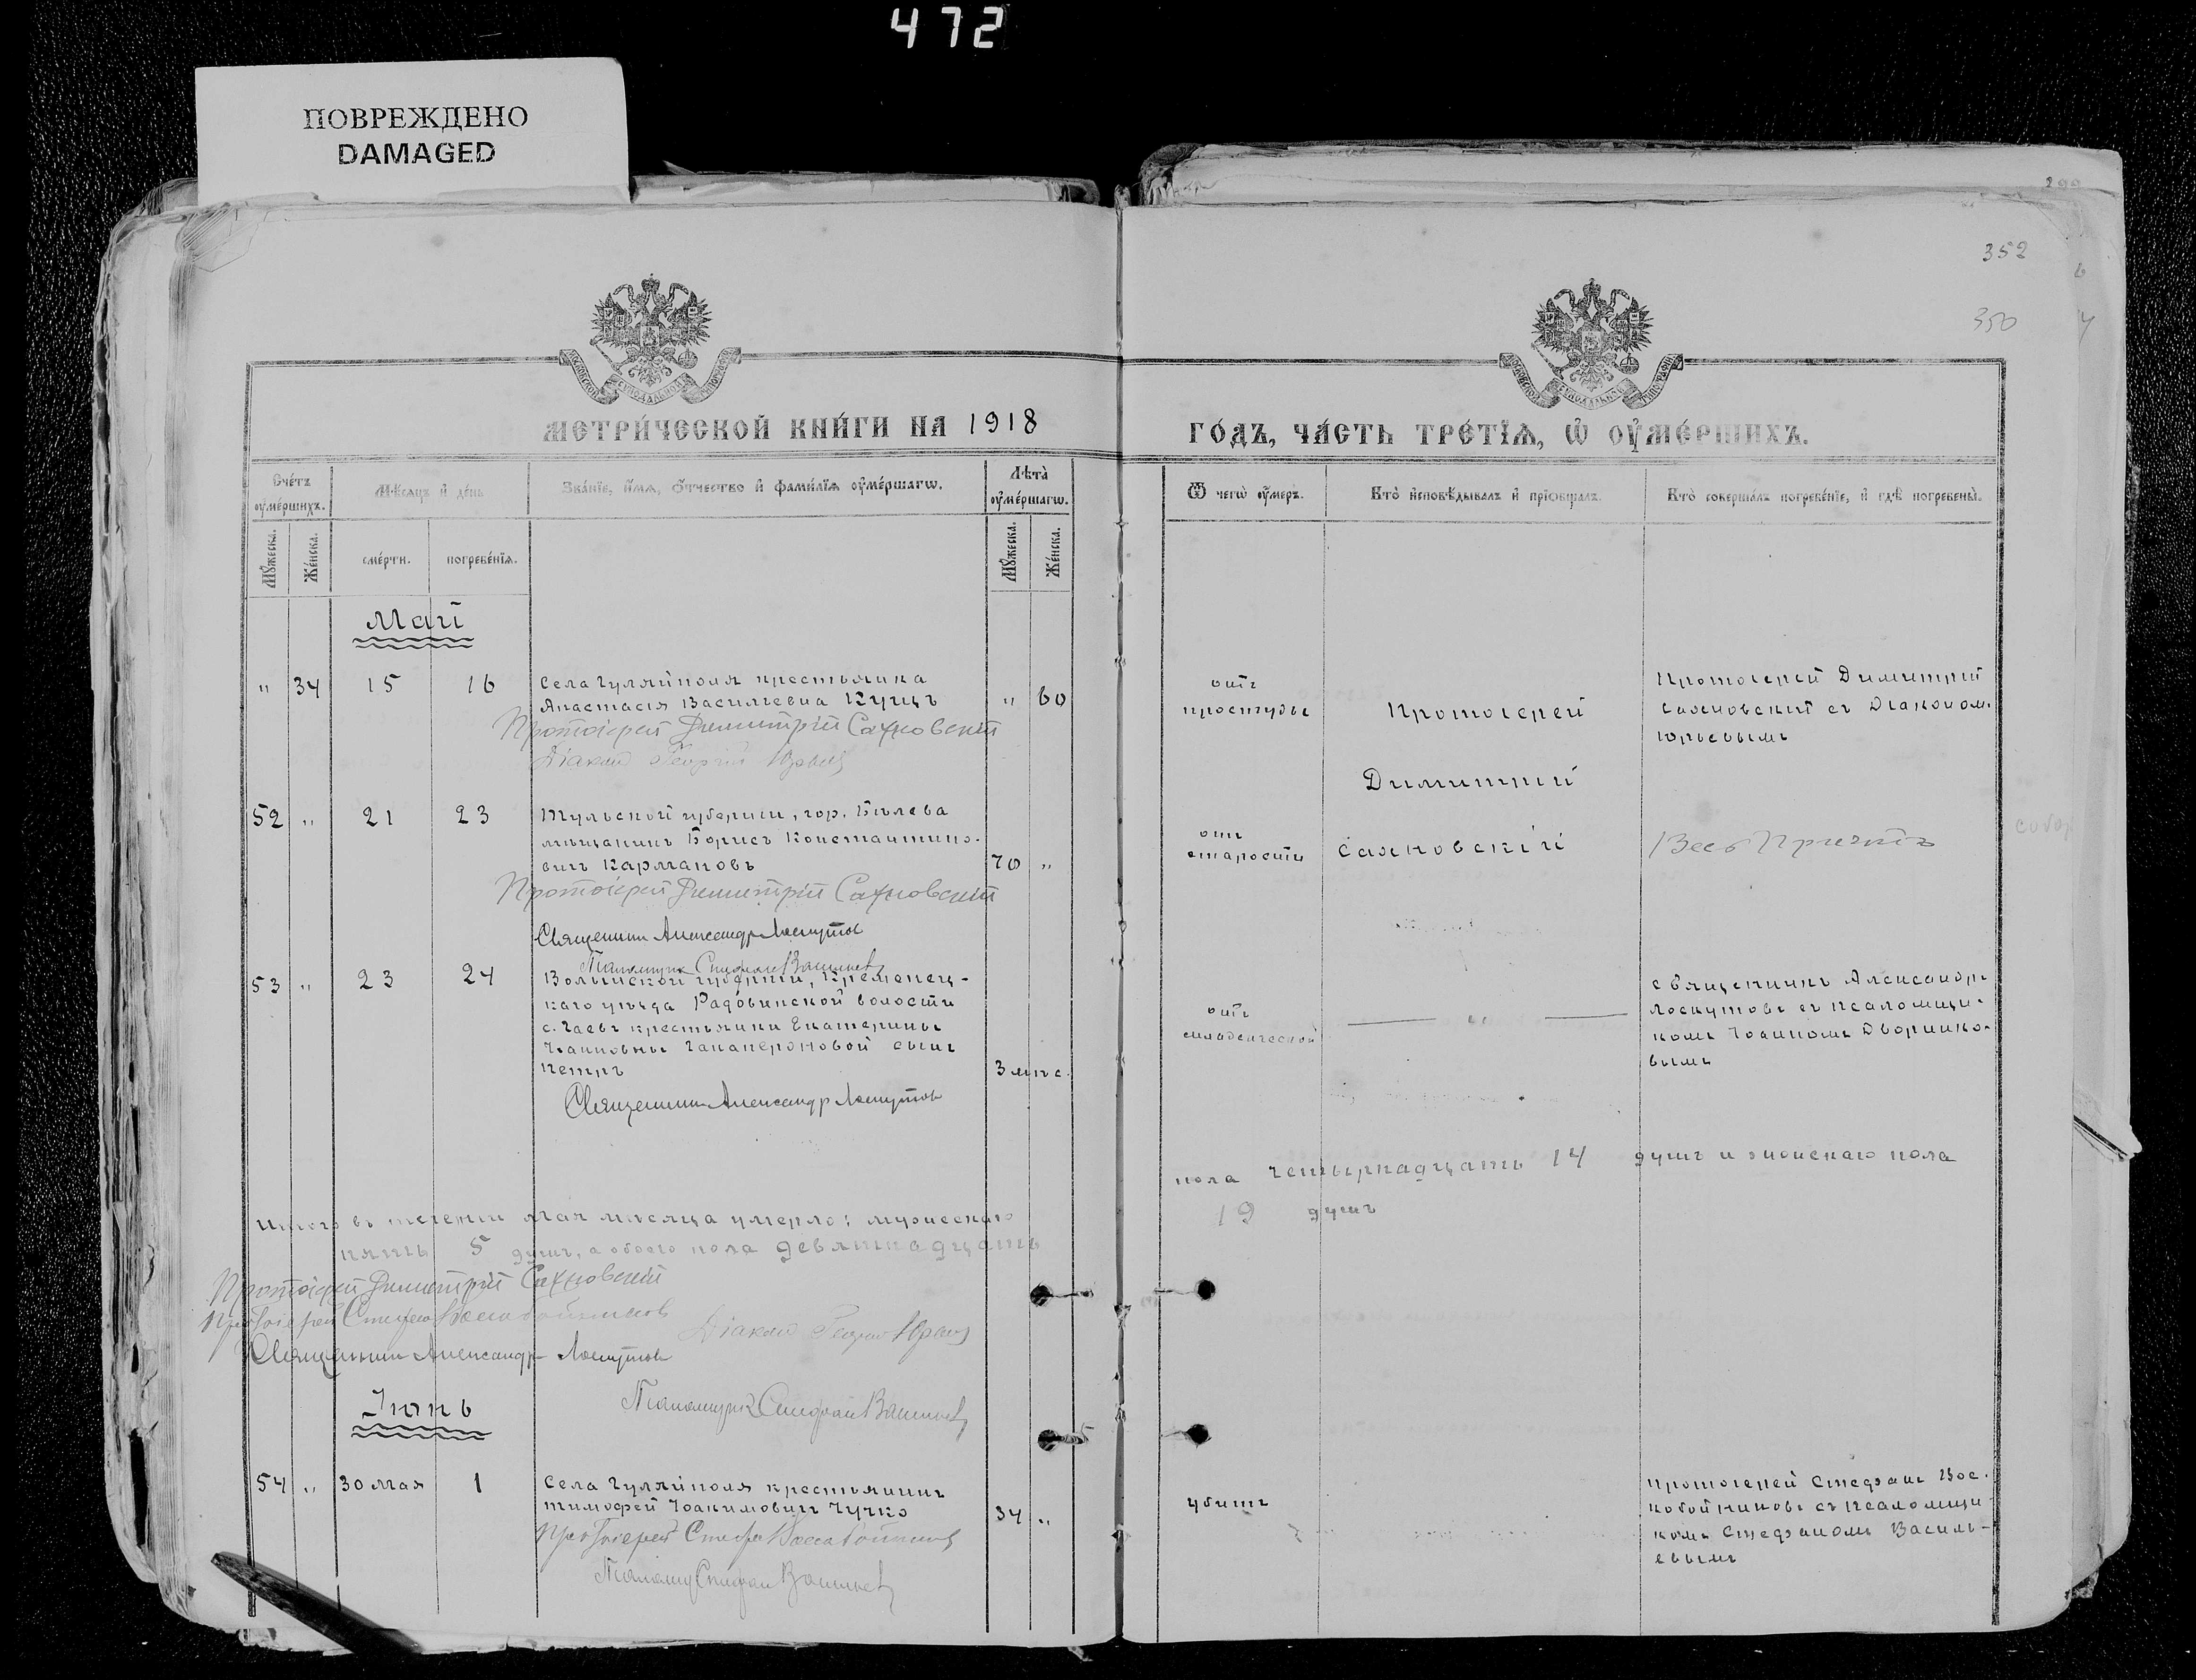 472
ПОВРЕЖДЕНО
DAMAGED
352
350
МЕТРИ́ЧЕСКОЙ КНИ́ГИ НА 1918
ГО́ДЪ, ЧА́СТЬ ТРЕ́ТЇѦ, Ѡ҆ ОУ҆МЕ́РШИХЪ.
Сче́тъ оу҆ме́ршихъ.
Мѣ́сѧцъ и҆ де́нь
Зва́нїе, и҆́мѧ, ѻ҆́тчество и҆ фами́лїѧ оу҆ме́ршагѡ.
Лѣта̀ оу҆ме́ршагѡ.
Ѿ чегѡ̀ оу҆́меръ.
Кто̀ и҆сповѣ́дывалъ и҆ прїѡбща́лъ.
Кто̀ соверша́лъ погребе́нїе, и҆ гдѣ̀ погребены̀.
Мꙋ́жеска.
Же́нска.
сме́рти.
погребе́нїѧ.
Мꙋ́жеска.
Же́нска.
Май
" 34 15 16
Села Гуляйполя крестьянка
Анастасія Васильевна Куцъ
" 60
Протоіерей Димитрій Сахновскій
Діаконъ Георгій Юрьевъ
отъ
простуды
Протоіерей
Димитрій
Сахновскій
Протоіерей Димитрій
Сахновскій съ Діаконом.
Юрьевымъ
52 " 21 23
Тульской губерніи, гор. Бѣлева
мѣщанинъ Борисъ Константино-
вичъ Кармановъ
70 "
Протоіерей Димитрій Сахновскій
Священникъ Александръ Лоскутовъ
Псаломщик Стефан Васильев
отъ
старости
Весь Причтъ
собор
53 " 23 24
Волынской губерніи, Кременец-
каго уѣзда Радовинской волости
с. Гаевъ крестьянки Екатерины
Іоанновны сынъ
Петръ
3 мѣс.
Священникъ Александръ Лоскутовъ
отъ
младенческой
— " —
Священникъ Александръ
Лоскутовъ съ псаломщи-
комъ Іоанномъ Дворнико-
вымъ
Итого въ теченіи Мая мѣсяца умерло: мужескаго
пола четырнадцать 14 душъ и женскаго пола
пять 5 душъ, а обоего пола девятнадцать
19 душъ
Протоіерей Димитрій Сахновскій
Протоіерей Стефан Воскобойников
Діаконъ Георгій Юрьевъ
Священникъ Александръ Лоскутовъ
Псаломщик Стефан Васильев
Іюнь
54 " 30 мая 1
Села Гуляйполя крестьянинъ
Тимофей Іоакимовичъ Чучко
34 "
Протоіерей Стефан Воскобойников
Псаломщ Стефан Васильев
убитъ
Протоіерей Стефанъ Вос-
кобойниковъ съ псаломщи-
комъ Стефаномъ Василь-
евымъ